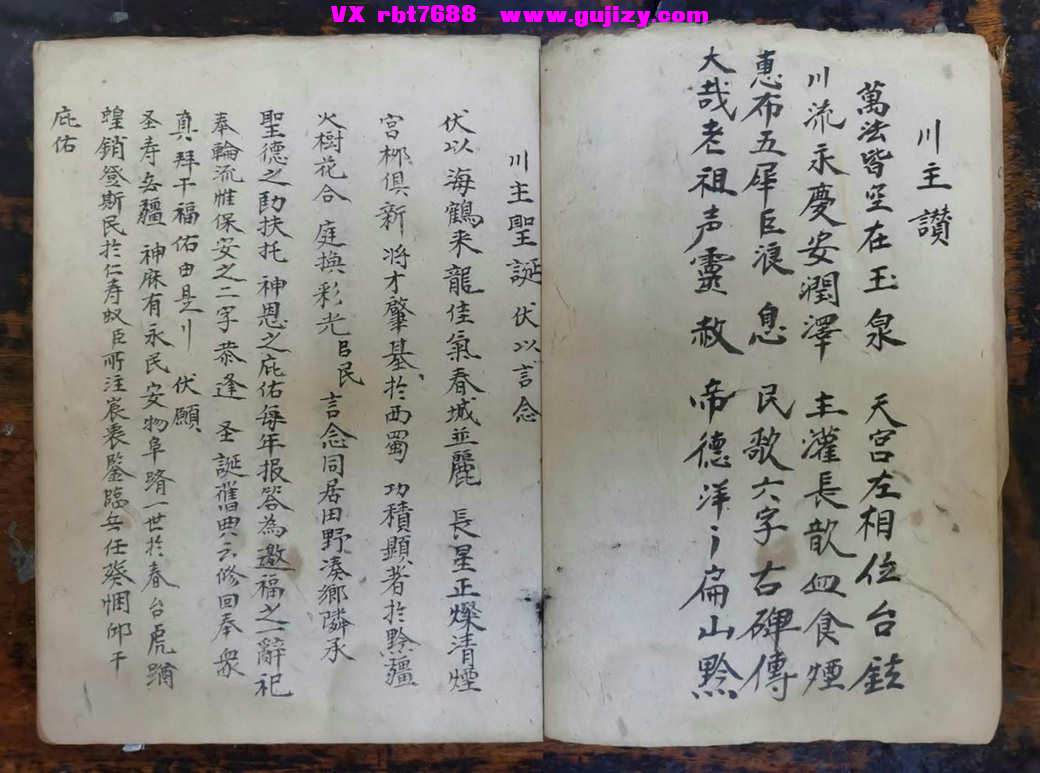 VX rbt7688 www.gujizy.com
川主讃
萬法皆空在玉泉 天宮左相位台鉉
川流永慶安潤澤 主灌長歆血食煙
惠布五犀巨浪息 民歌六字古碑傳
大哉老祖声靈赦 帝德洋々扁山黔
川主聖誕 伏以言念
伏以海鶴来龍佳氣春城並麗 長星正燦清煙
宮柳俱新 将才肇基於西蜀 功積顯著於黔疆
火樹花合 庭換彩光 臣民 言念同居田野凑鄉隣承
聖德之助扶托 神恩之庇佑每年报答為邀福之一辭祀
奉輪流惟保安之二字恭逢 圣誕舊典云修回奉衆
真拜干福佑由是川 伏願
圣寿无疆 神庥有永民安物阜躋一世於春台虎
蝗銷登斯民於仁寿奴臣所注宸衷鑒臨无任葵悃仰干
庇佑